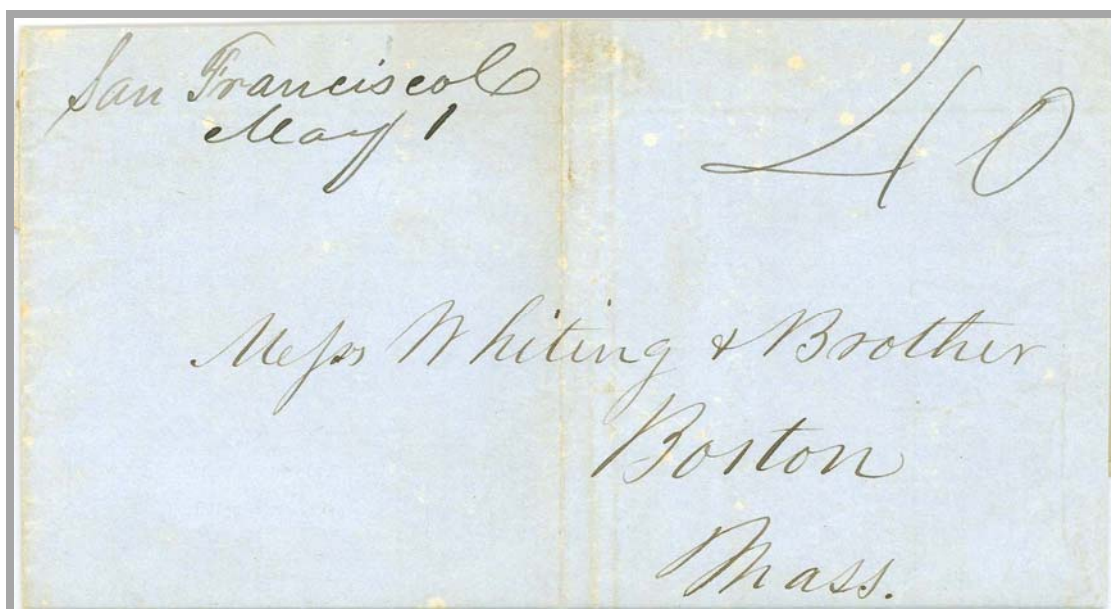 San Francisco
May 1
40
Messrs Whiting & Brother
Boston
Mass.